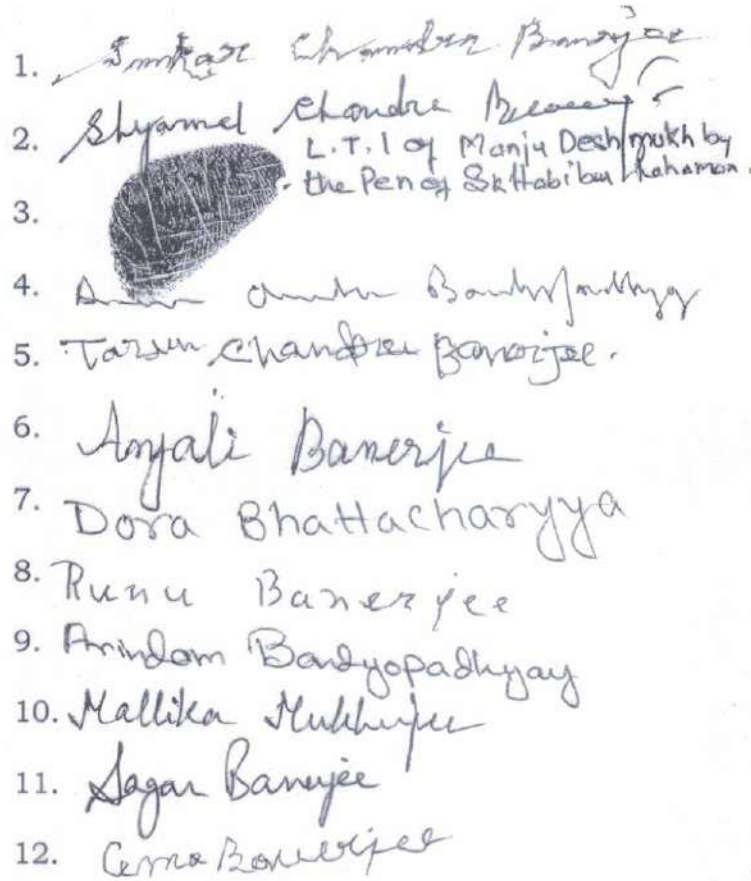 1. Chandra Banerjee
2. Shyamal Chandra
L.T.I of Manju Deshmukh by
the Pen of Sk Habibur Rahaman.
3.
4.
5. Tarun Chandra Banerjee.
6. Anjali Banerjee
7. Dora Bhattacharyya
8. Runu Banerjee
9. Arindam Bandyopadhyay
10. Mallika Mukherjee
11. Sagar Banerjee
12. Banerjee